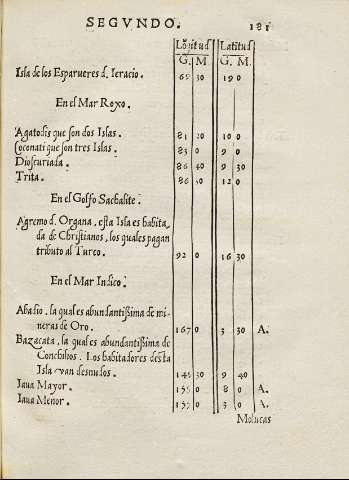 SEGVNDO. 181
Lõgitud Latitud
G. M. G. M.
Isla de los Esparueres d. Ieracio. 65 30 19 0
En el Mar Roxo.
Agatodis que son dos Islas. 81 20 10 0
Cocenati que son tres Islas. 83 0 9 0
Dioscuriada. 86 40 9 30
Trita. 86 30 12 0
En el Golfo Sachalite.
Agremo d. Organa, esta Isla es habita
da de Christianos, los quales pagan
tributo al Turco. 92 0 16 30
En el Mar Indico.
Abadio. la qual es abundantissima de mi-
neras de Oro. 167 0 3 30 A.
Bazacata, la qual es abundantissima de
Conchilios. Los habitadores desta
Isla van desnudos. 149 30 9 40
Iaua Mayor. 159 0 8 0 A.
Iaua Menor. 159 0 3 0 A.
Molucas